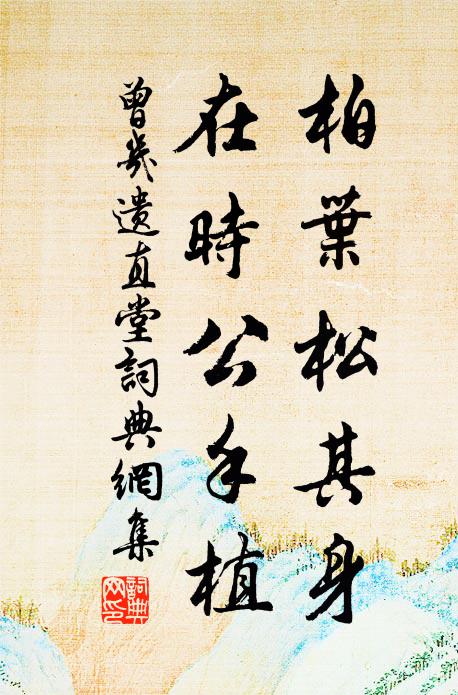 柏葉松其身
在時公手植
曾幾遺直堂詞典網集
詞典網印